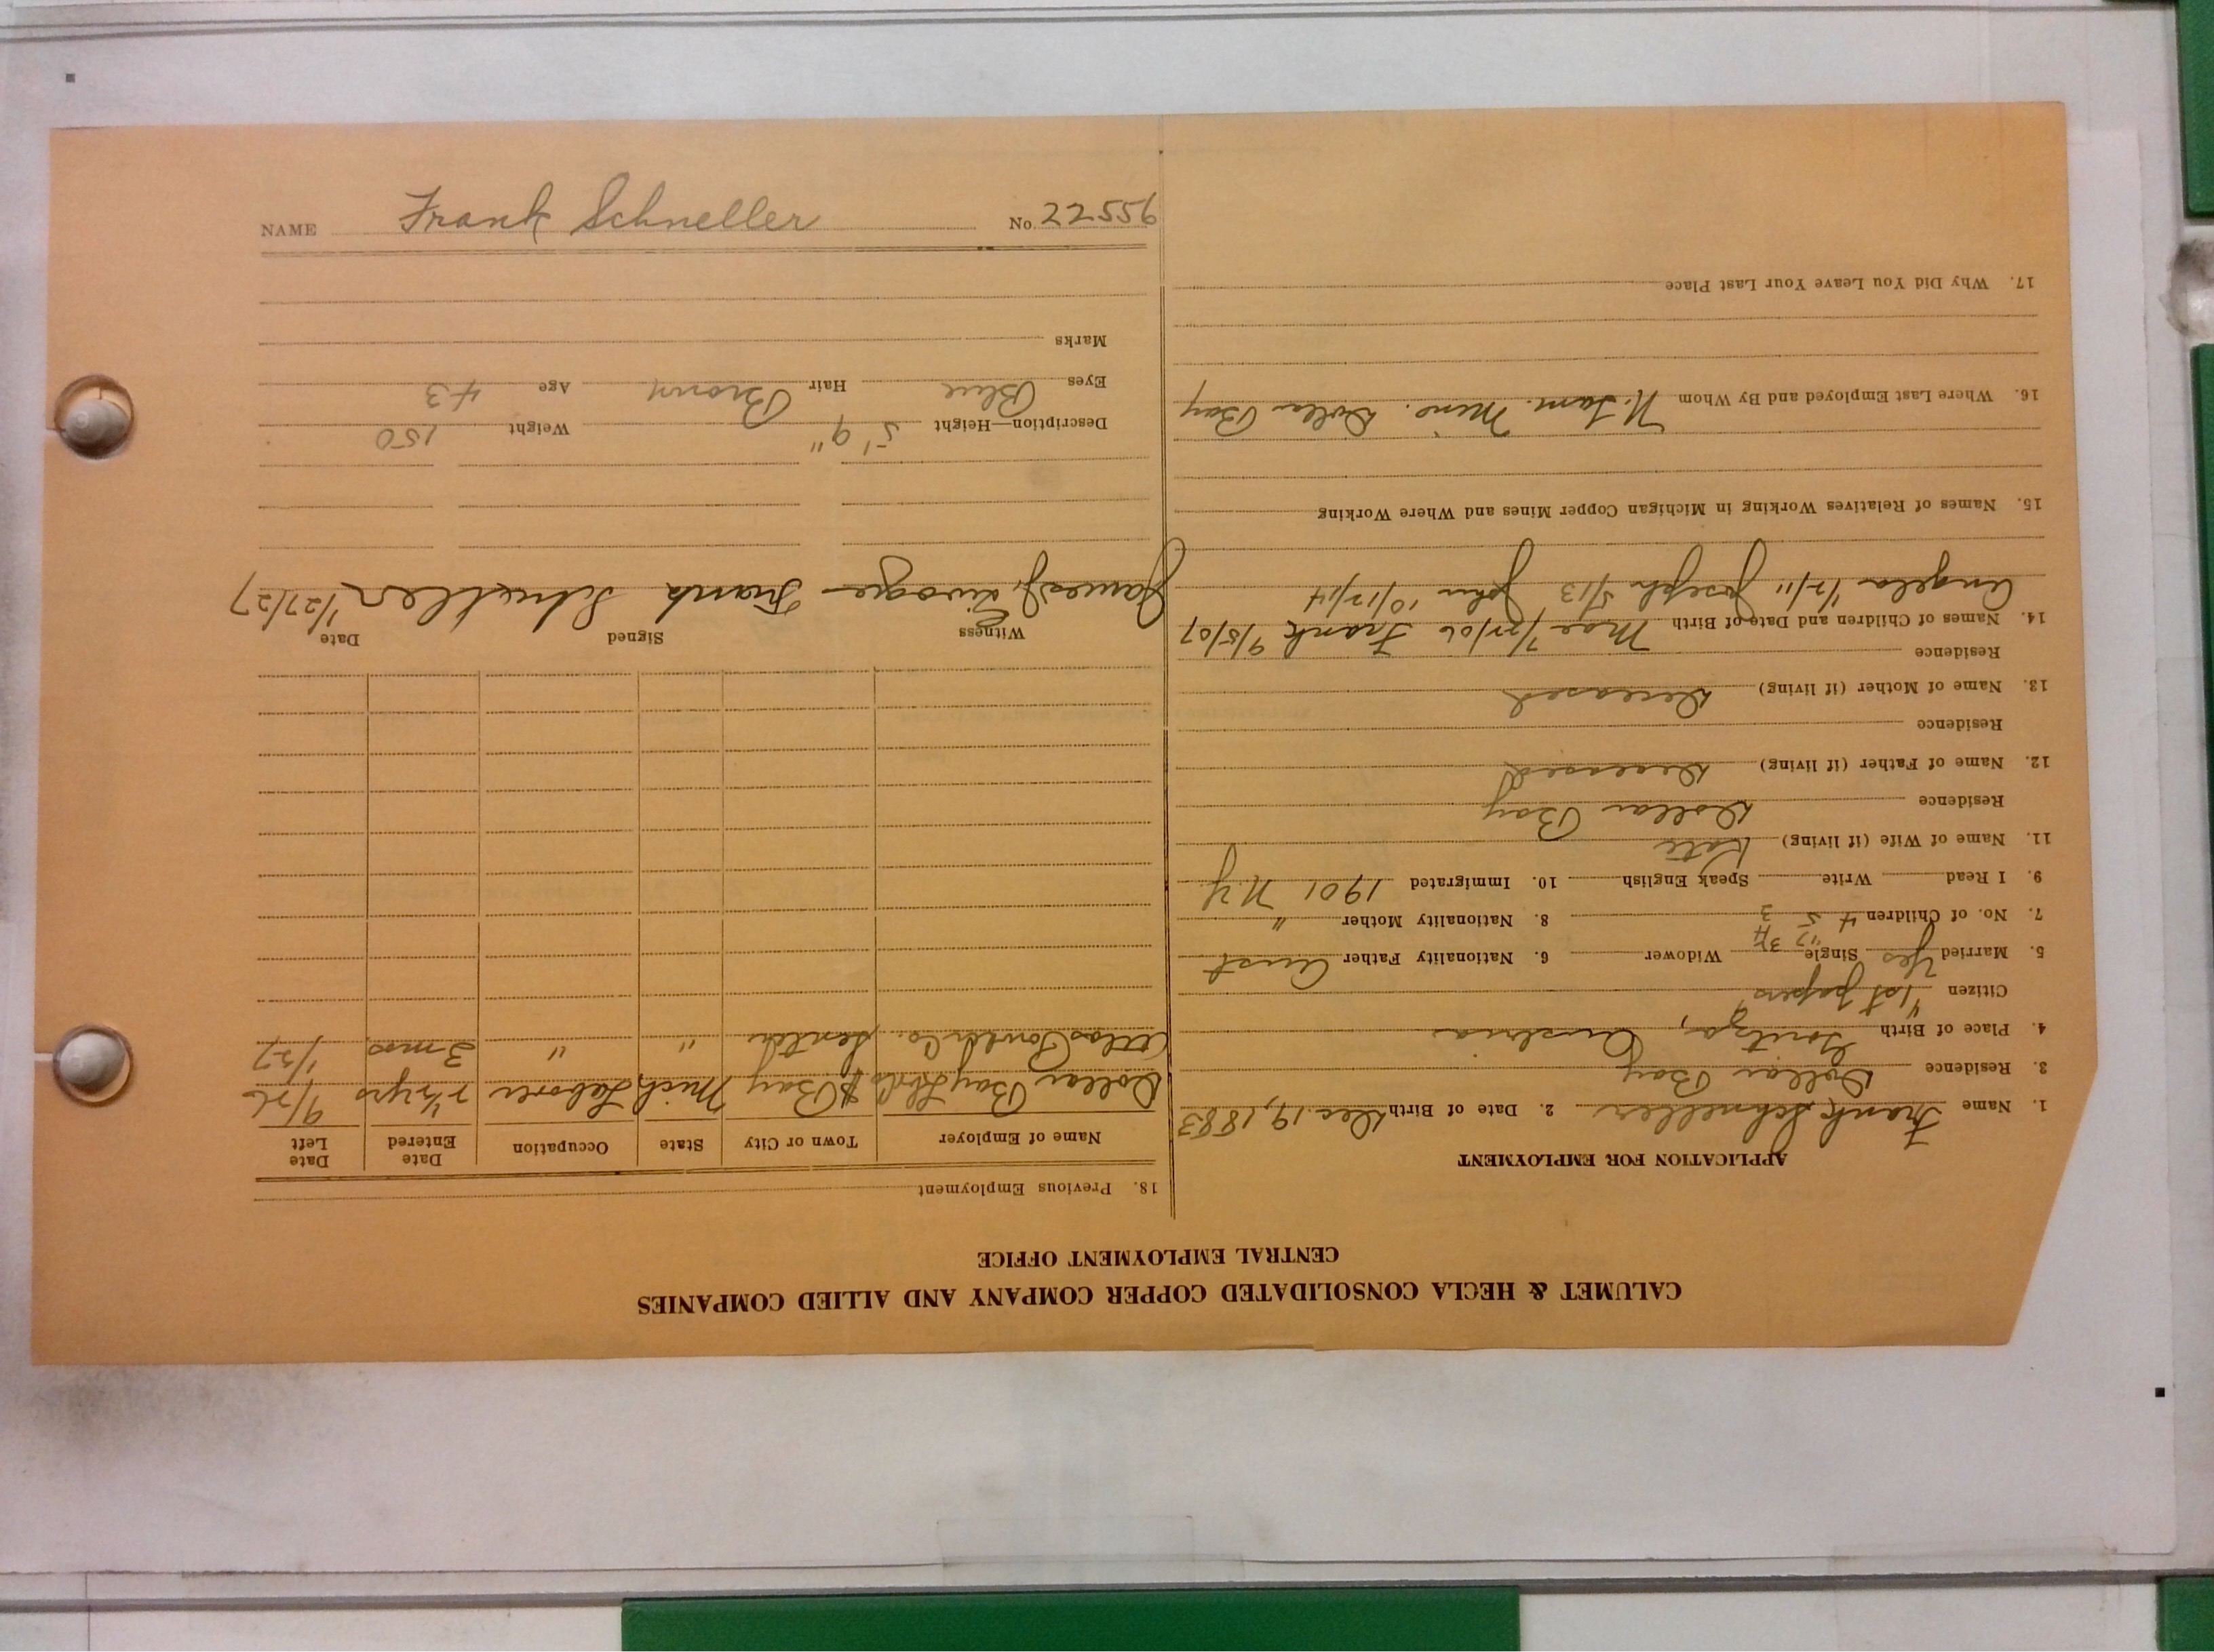 NAME Frank Schneller No. 22556
CALUMET & HECLA CONSOLIDATED COPPER COMPANY AND ALLIED COMPANIES
CENTRAL EMPLOYMENT OFFICE
APPLICATION FOR EMPLOYMENT
1. Name Frank Schneller 2. Date of Birth Dec. 19, 1883
3. Residence Dollar Bay
4. Place of Birth Austria
Citizen "1st papers"
5. Married Yes Single Widower 6. Nationality Father Aust
7. No. of Children 4 5 3 8. Nationality Mother "
9. I Read Write Speak English 10. Immigrated 1901 N.Y
11. Name of Wife (if living) Kate
Residence Dollar Bay
12. Name of Father (if living) Deceased
Residence
13. Name of Mother (if living) Deceased
Residence
14. Names of Children and Date of Birth Mae 7/22/06 Frank 9/5/07
Angela 1/2/11 Joseph 5/13 John 10/12/14
15. Names of Relatives Working in Michigan Copper Mines and Where Working
16. Where Last Employed and By Whom Dollar Bay
17. Why Did You Leave Your Last Place
18. Previous Employment
Name of Employer Town or City State Occupation Date Entered Date Left
Dollar Bay $ Bay Mich Laborer 2 1/2 yrs 9/26
Atlas Powder Co. Senter " " 3 mos 1/27
Witness Signed Date
James Frank Schneller 1/27/27
Description—Height 5' 9" Weight 150
Eyes Blue Hair Brown Age 43
Marks